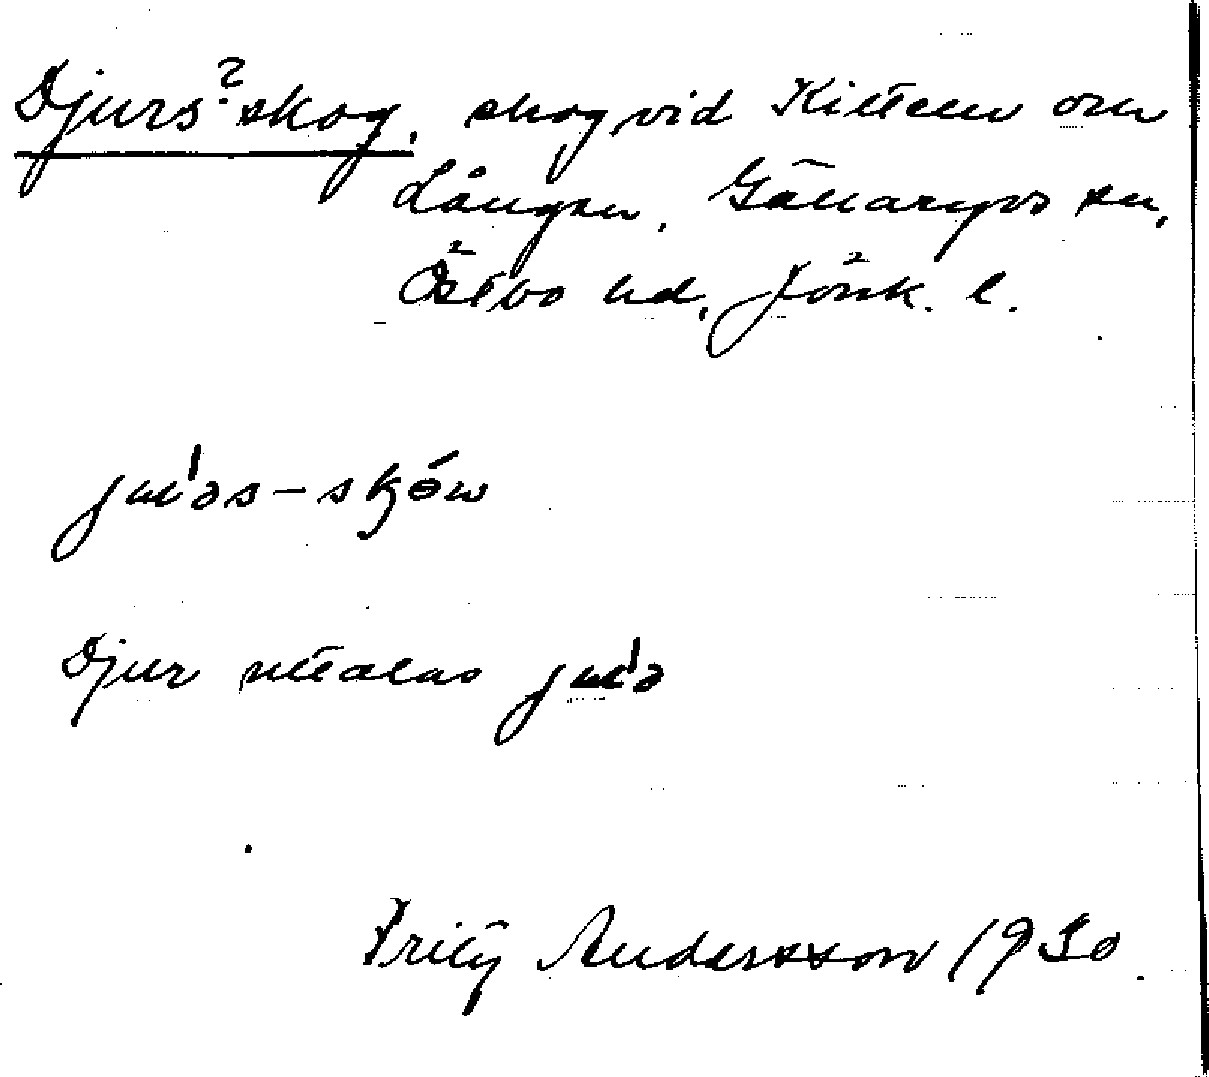 Djurs?skog, skog vid Kitteln om
Lången, Gällaryds sn,
Östbo hd, Jönk. l.
Djur uttalas
Fritz Andersson 1930.